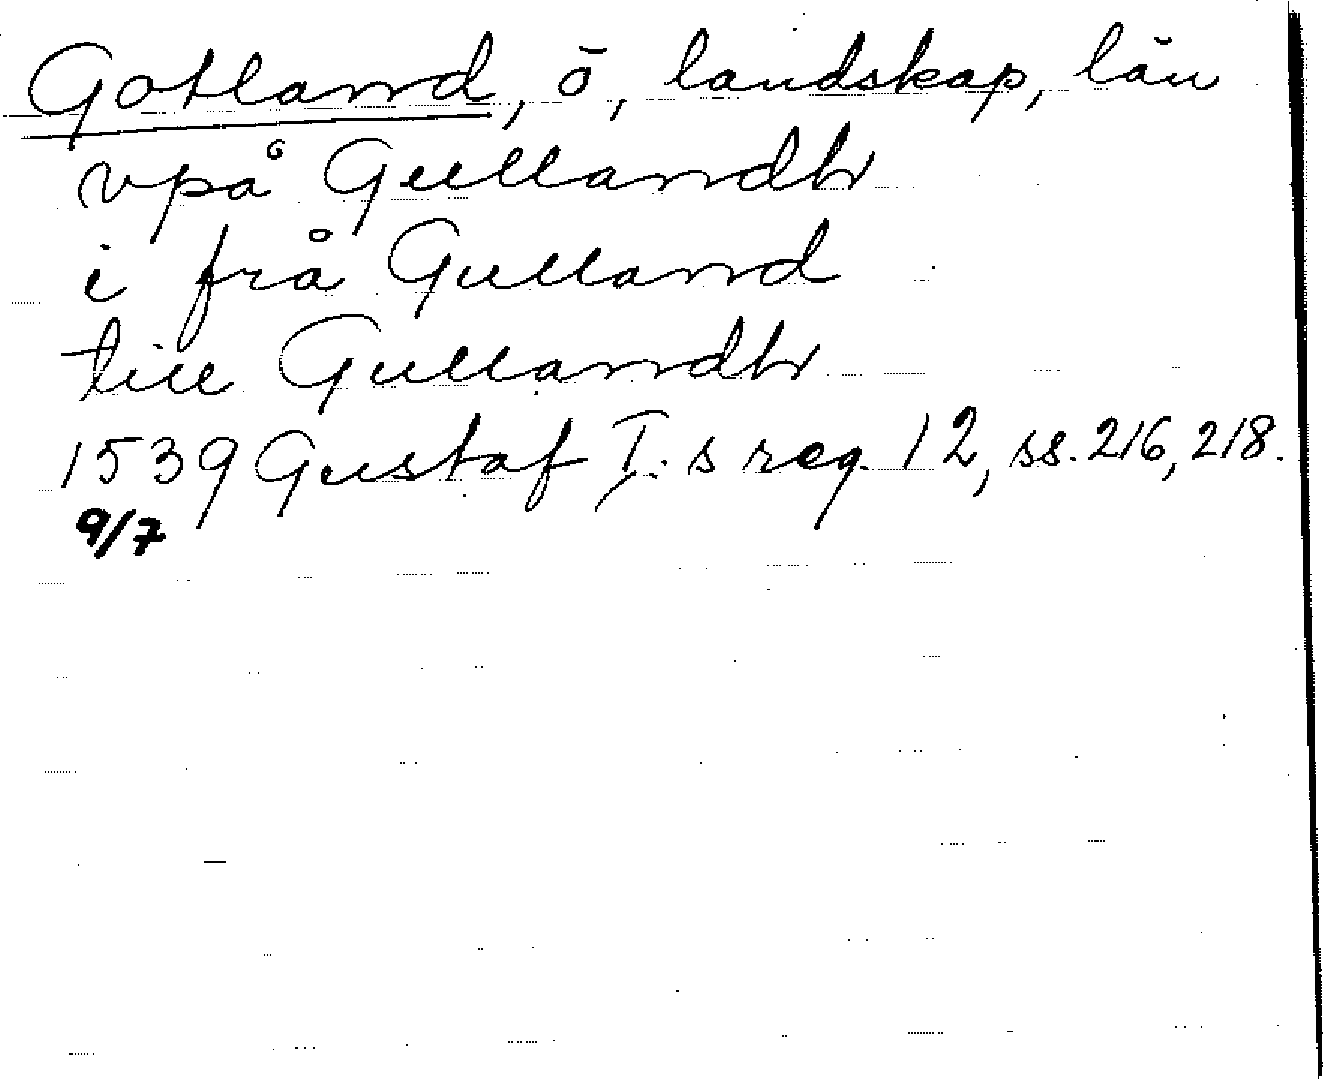 Gotland, ö, landskap, län
vpå Gullandh
i frå Gulland
till Gullandh
1539 Gustaf I:s reg. 12, ss. 216, 218.
9/7